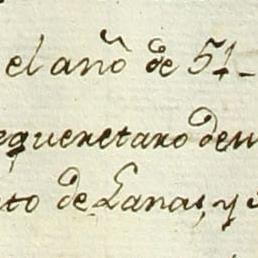 el año de 51
queretaro
to de Lanas, y